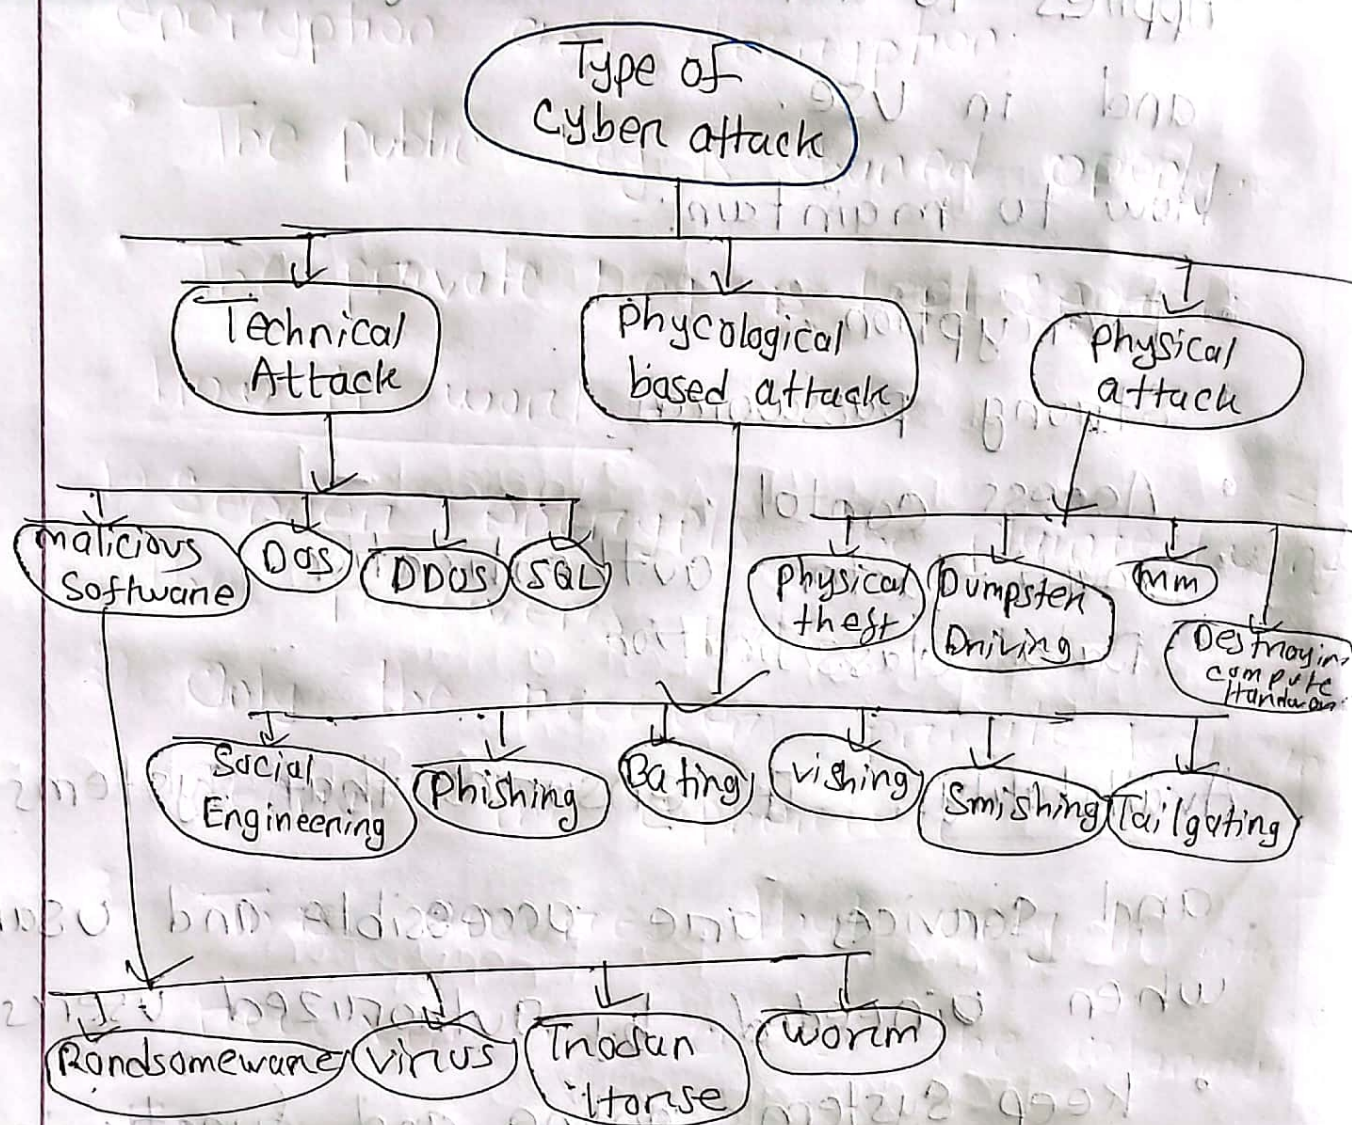 Type of
Cyber attack
Technical
Attack
Phycological
based attack
Physical
attack
malicious
Software
DOS
DDOS
SQL
Physical
theft
Dumpster
Driving
mm
Destroyin
compute
Hardwar
Social
Engineering
Phishing
Bating
vishing
Smishing
Tailgating
Randsomeware
virus
Trodsan
Horse
worm